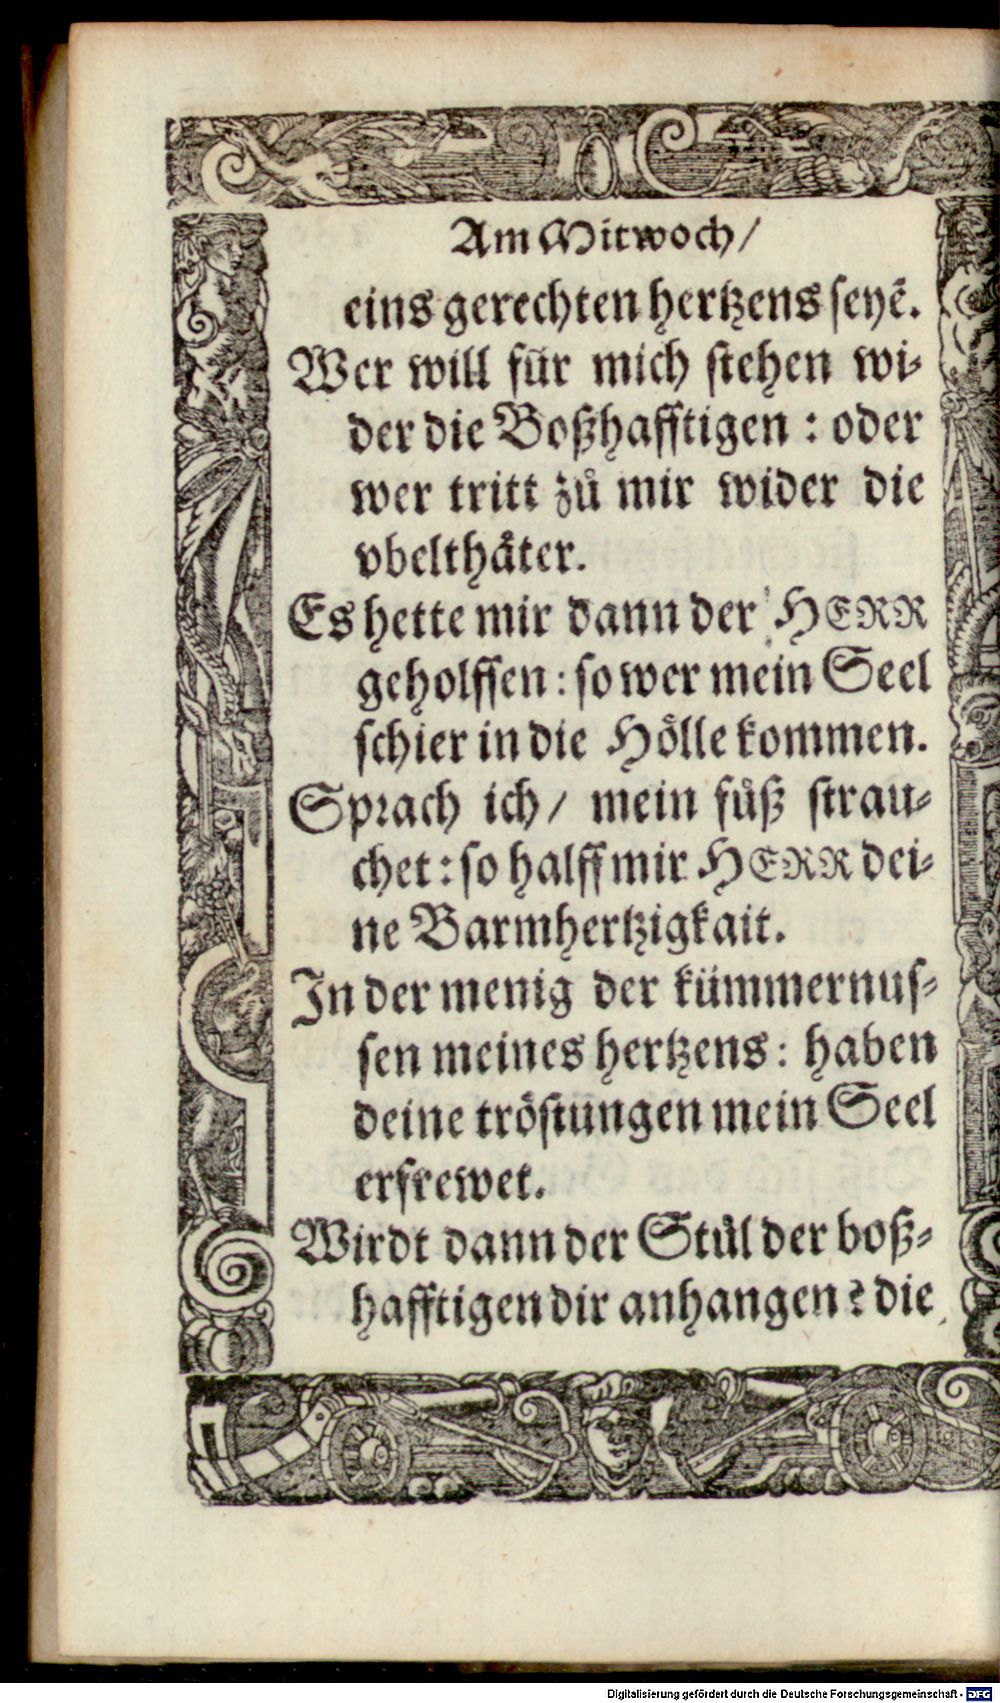 Am Mitwoch/
eins gerechten hertzens seyẽ.
Wer will für mich stehen wi⸗
der die Boßhafftigen : oder
wer tritt zů mir wider die
vbelthäter.
Es hette mir dann der HERR
geholffen : so wer mein Seel
schier in die Hölle kommen.
Sprach ich/ mein fůß strau⸗
chet : so halff mir HERR dei⸗
ne Barmhertzigkait.
In der menig der kümmernus⸗
sen meines hertzens : haben
deine tröstungen mein Seel
erfrewet.
Wirdt dann der Stůl der boß⸗
hafftigen dir anhangen? die
Digitalisierung gefördert durch die Deutsche Forschungsgemeinschaft - DFG